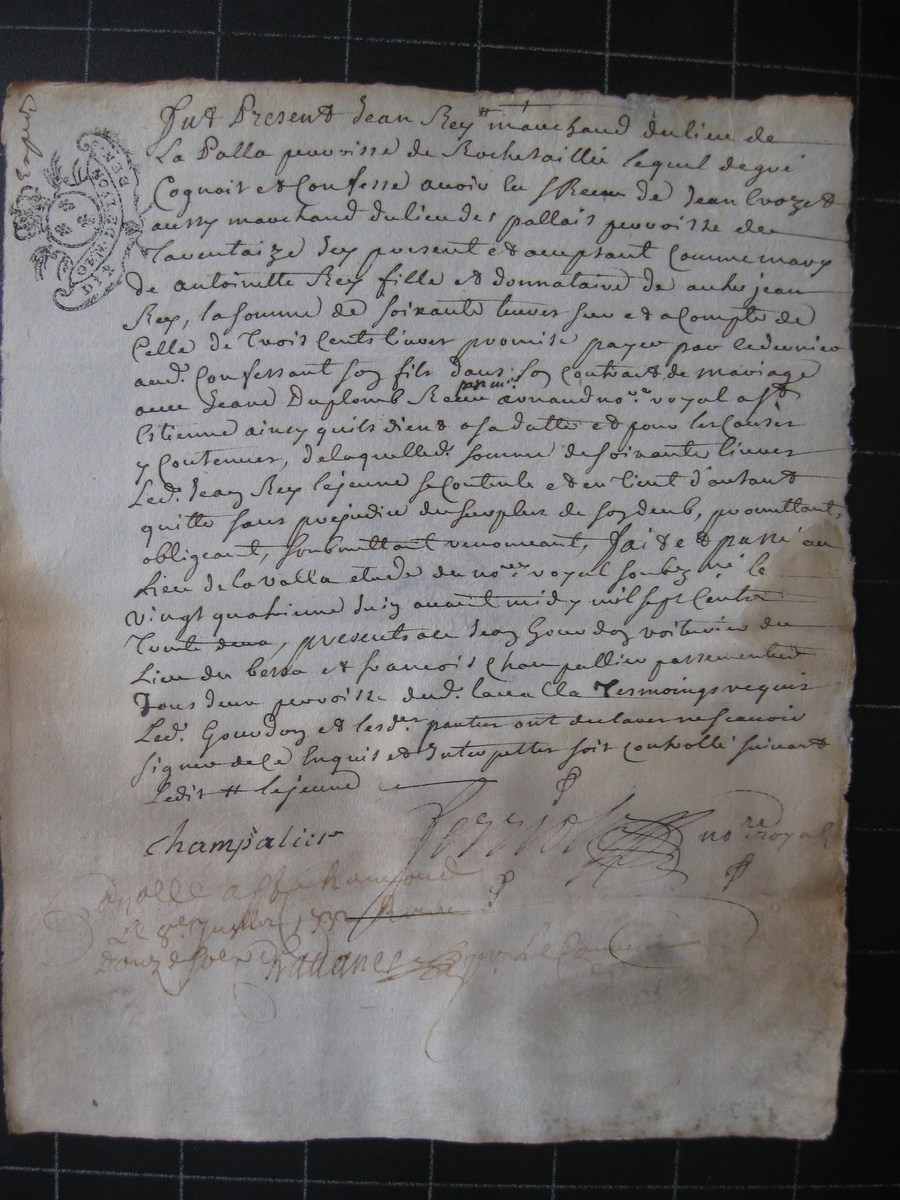 Fut Present Jean Rey # marchand du lieu de
La Palla parroisse de Rochetaillée lequel de gré
Cognoit et Confesse avoir eu et Receu de Jean Crozet
aussy marchand du lieu des pallais parroisse de
Tarentaize Icy present et acceptant Comme mary
de antoinette Rey fille et donnataire de autre jean
Rey, la somme de soixante livres sur et a Compte de
Celle de Trois Cents livres promise payer par le dernier
aud. Confessant son fils dans son Contract de mariage
avec Jeane Duplomb Receu par me. arnaud nore. royal a St
Estienne ainsy quils dient a sa datte et pour les Causes
y Contenues, de laquelle d. somme de soixante livres
Led. Jean Rey le jeune se Contente et en tient d'autant
quitte sans prejudice du surplus de son deub, promettant,
obligeant, soubmettant renonceant, Fait et passé au
Lieu de la valla etude du nore. royal soubzné le
vingt quatrieme Juin avant midy mil sept Cents
Trente deux, presents a ce Jean Gourdon voiturier du
Lieu du bessa et francois Champallier passementier
Tous deux parroisse dud. Lavalla Tesmoings requis
Led. Gourdon et lesd. parties ont declarer ne scavoir
signer de Ce Enquis et Interpellez soit Controllé suivant
Ledit # le jeune
Champalier nore Royal
le 8e Juillet 1732
Douze sols